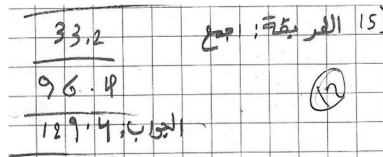 15) الطريقة: اجمع
33.2
96.4
12
الجواب: 129.4